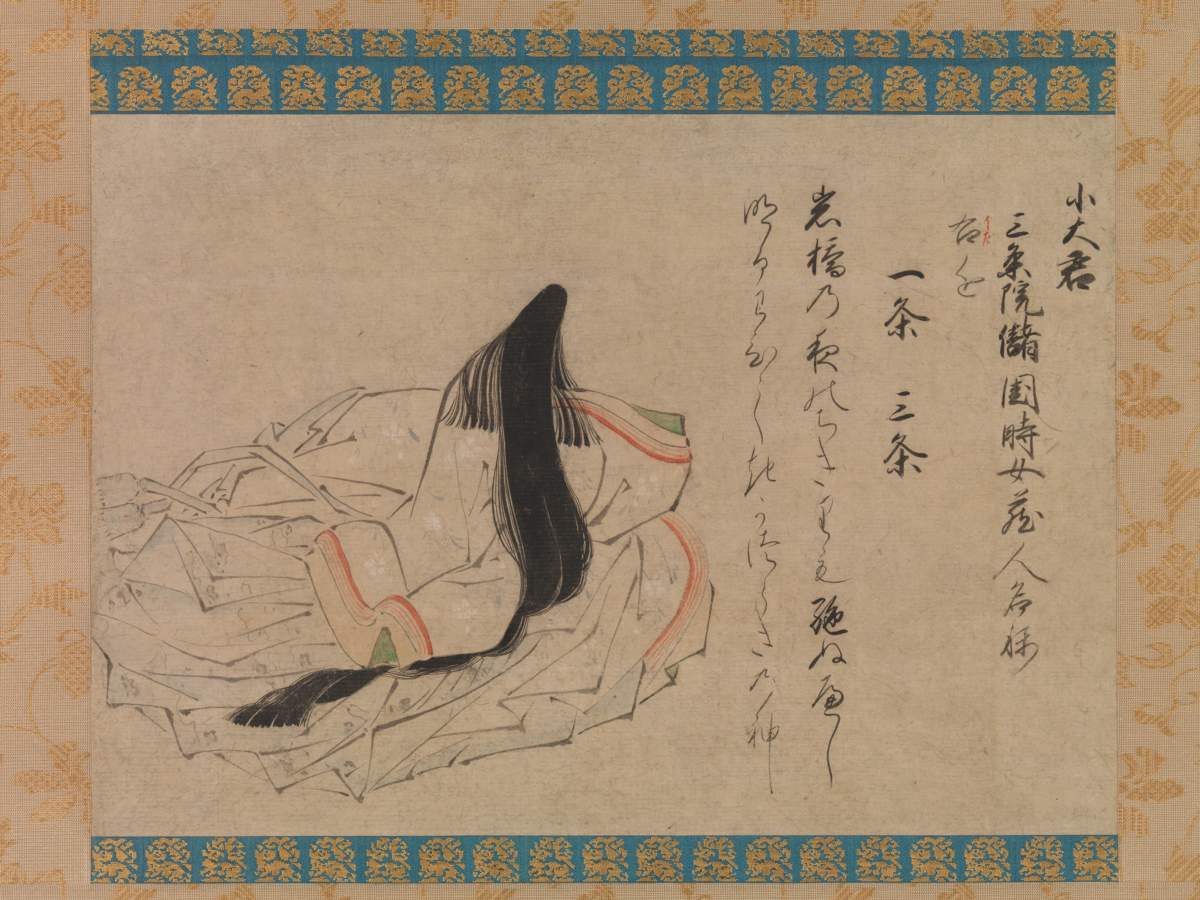 小大君
三条院儲時女蔵人名称
右近
一条 三条
岩橋乃夜のちきりも絶ぬへし
明るわひしきかつらき乃神